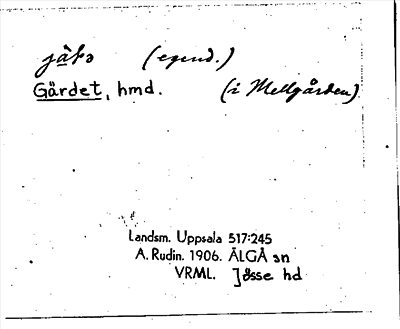 (egend.)
Gärdet, hmd. (i Mellgården)
Landsm. Uppsala 517:245
A. Rudin. 1906. ÄLGÅ sn
VRML. Jösse hd